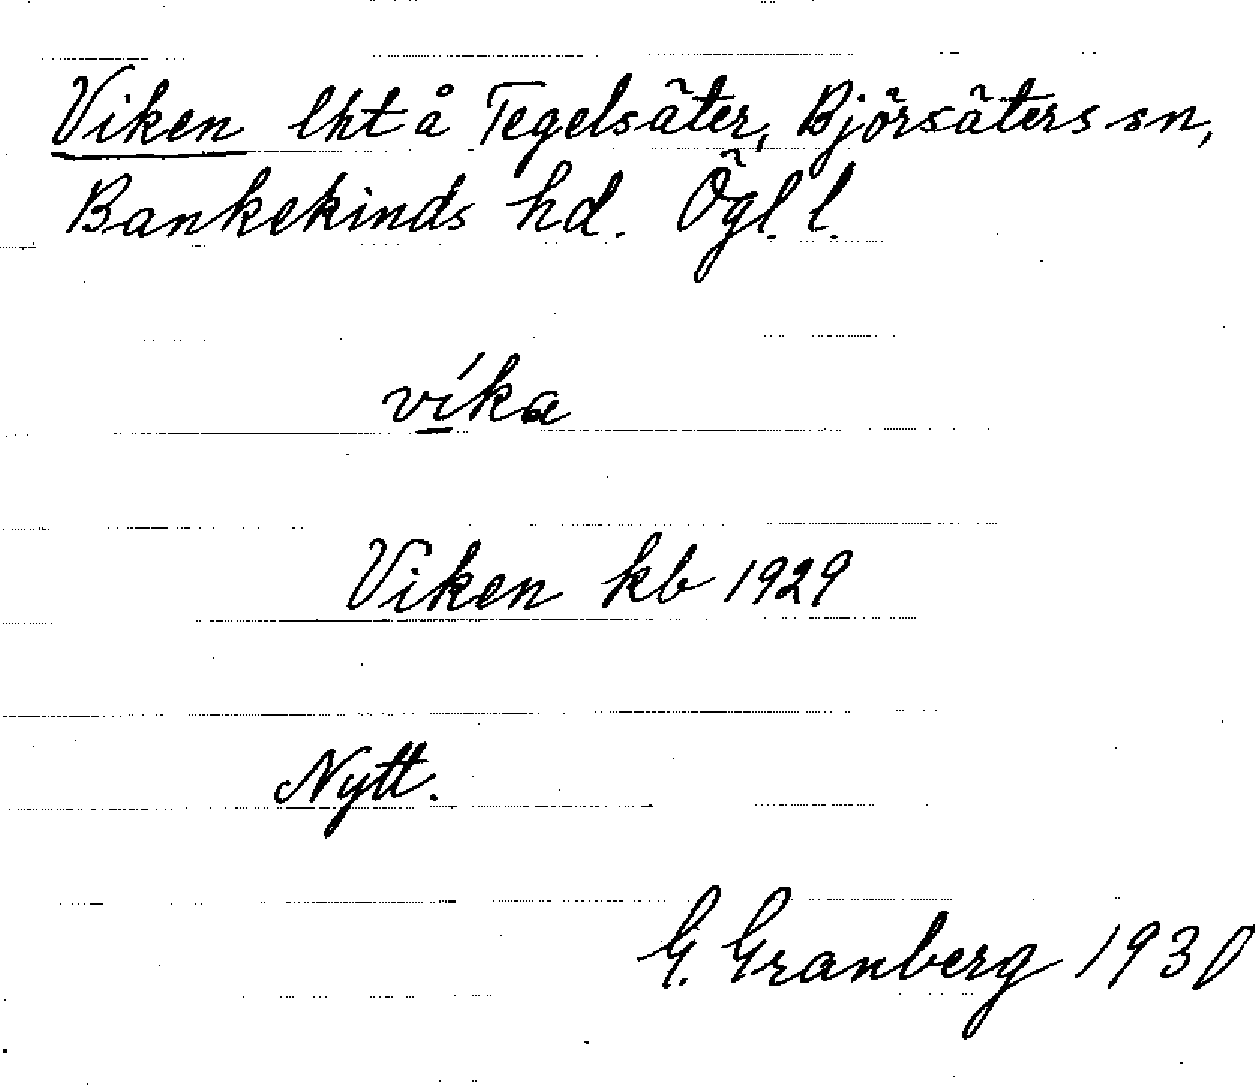 Viken lht å Tegelsäter, Björsäters sn,
Bankekinds hd. Ögl. l.
víka
Viken kb 1929
Nytt.
G. Granberg 1930